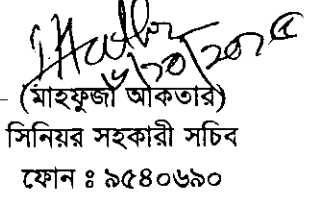 (মাহফুজা আকতার)
সিনিয়র সহকারী সচিব
ফোন ঃ ৯৫৪০৬৯০